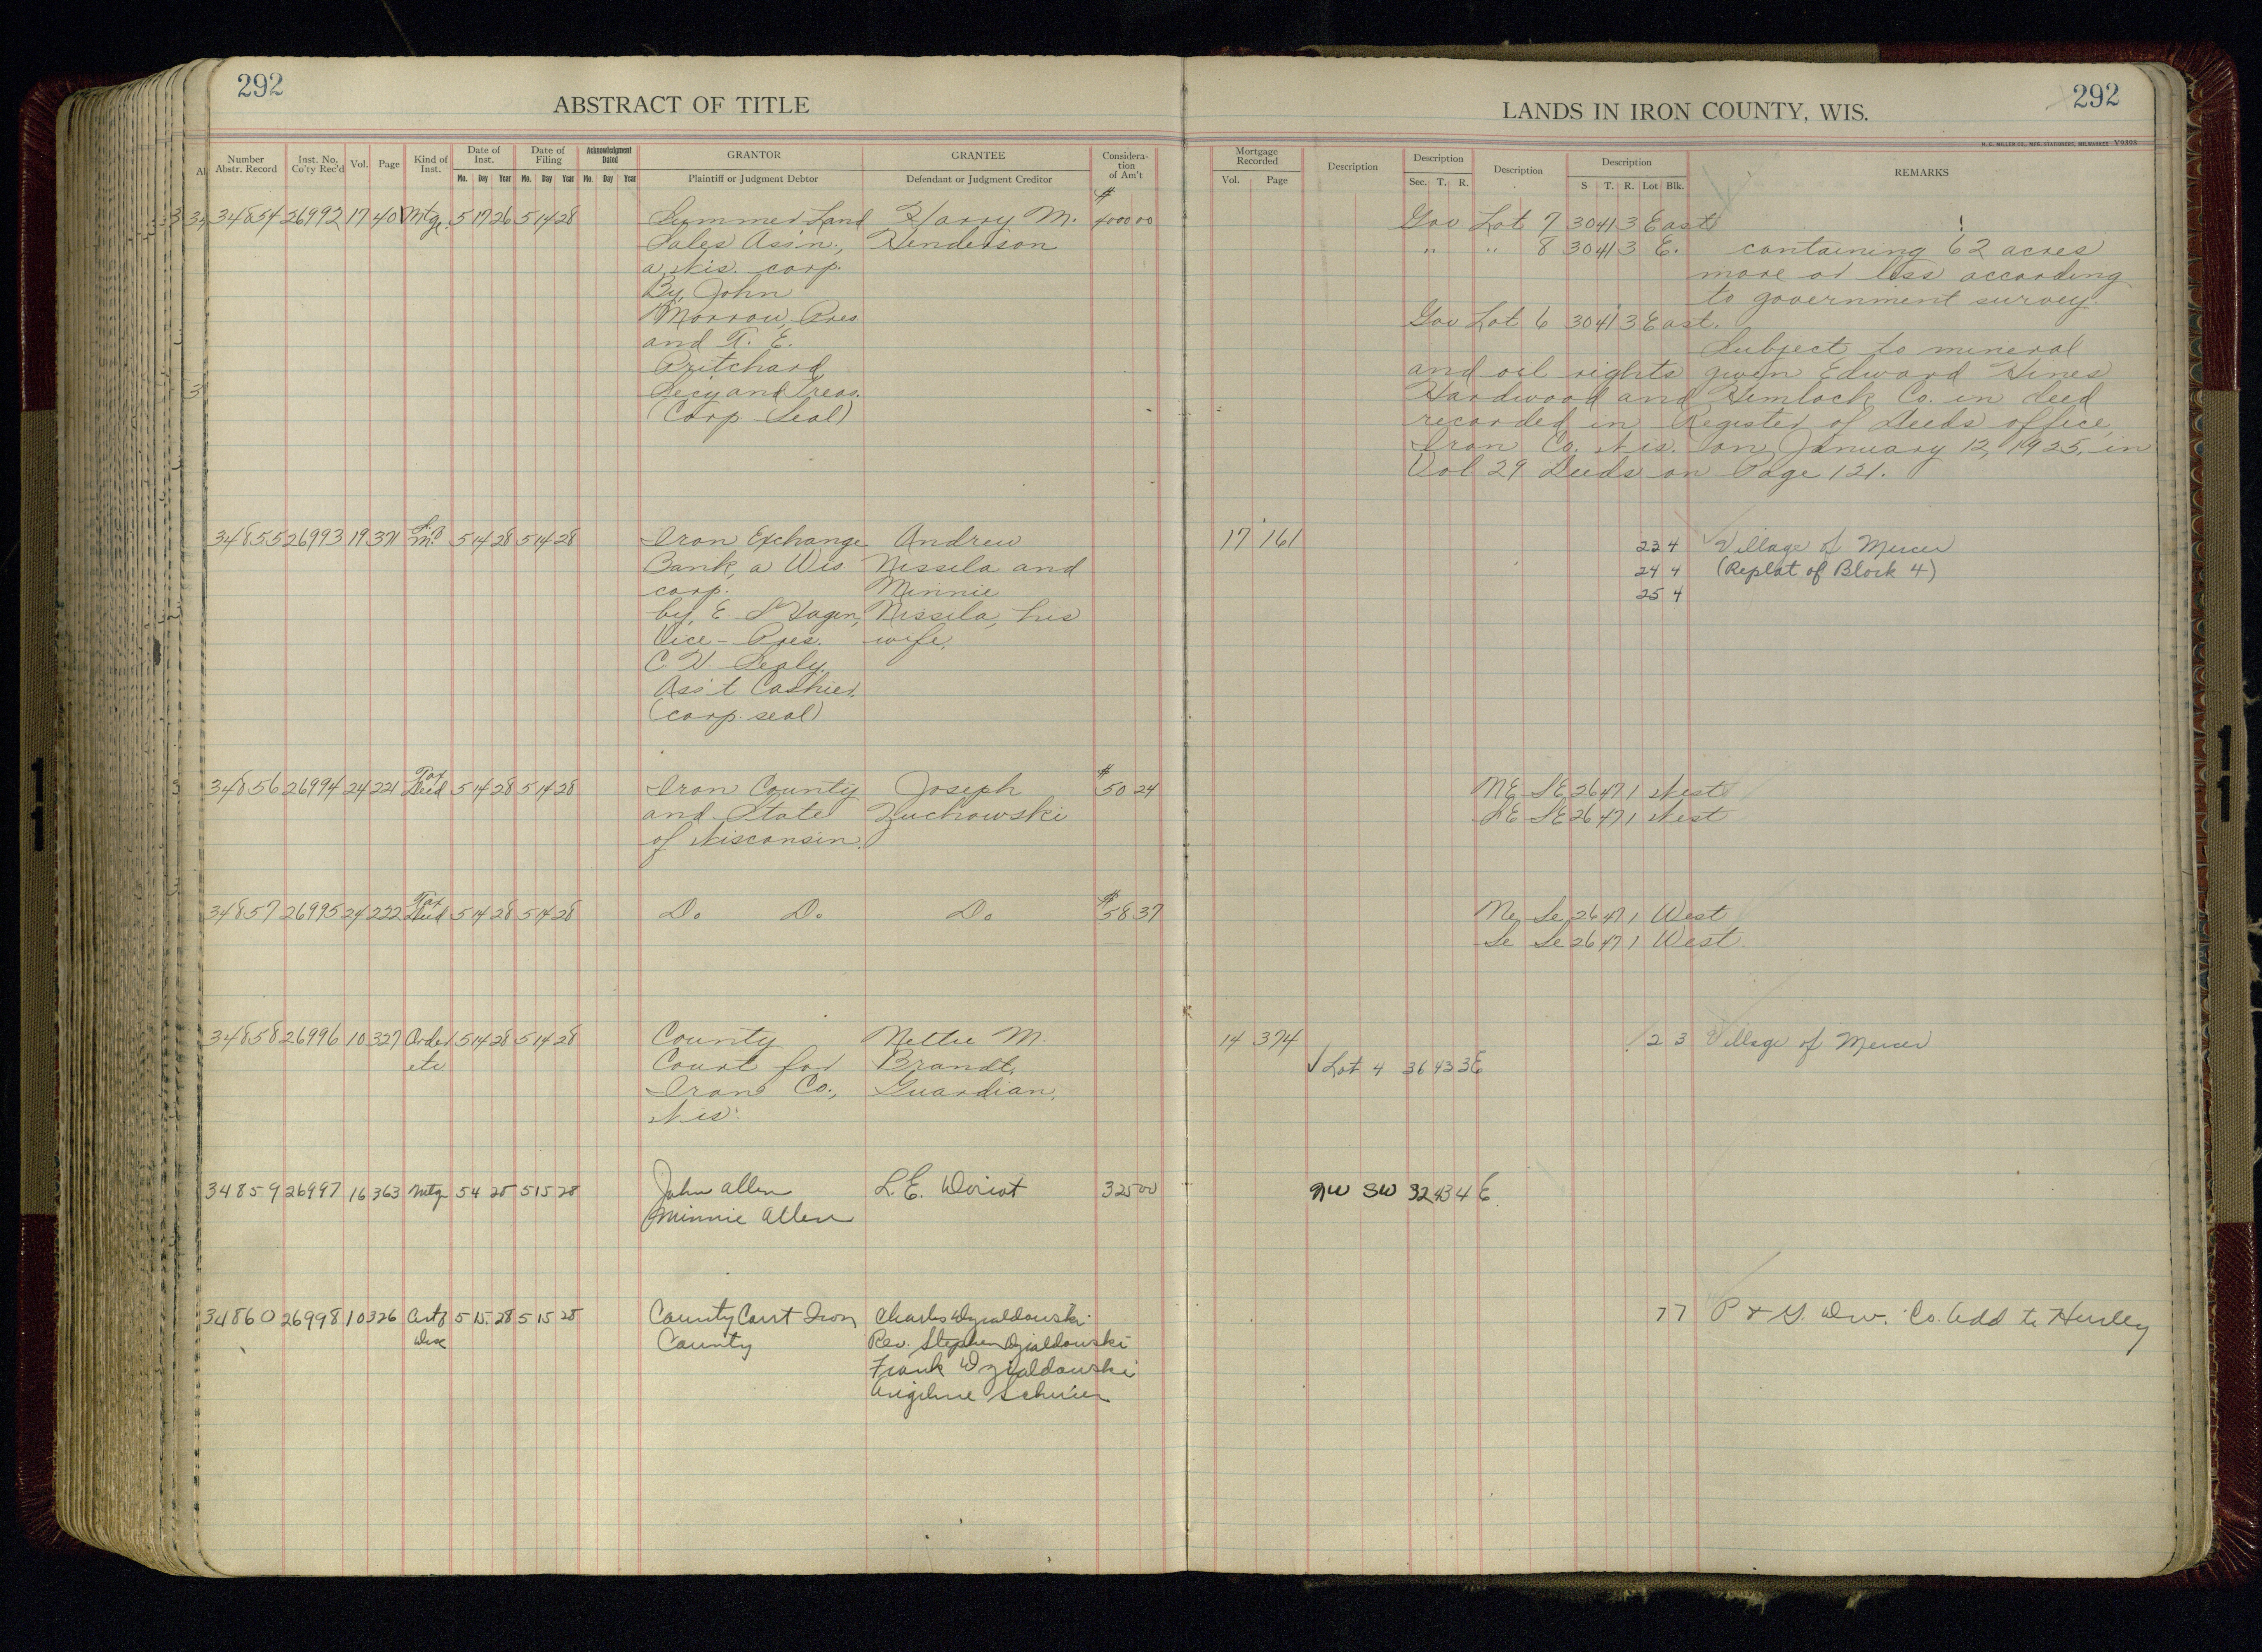 292
ABSTRACT OF TITLE
Number Abstr. Record Inst. No. Co'ty Rec'd Vol. Page Kind of Inst. Date of Inst. Mo. Day Year Date of Filing Mo. Day Year Acknowledgment Dated Mo. Day Year GRANTOR Plaintiff or Judgment Debtor GRANTEE Defendant or Judgment Creditor Consideration of Am't
34854 26992 17 40 Mtge. 5 17 26 5 14 28 Summer Land Harry M. $4000 00
Sales Ass'n., Henderson
a Wis. corp.
By, John
Morrow, Pres
and T. E.
Pritchard
Secy and Treas.
(Corp Seal)
34855 26993 19 371 5 14 28 5 14 28 Iron Exchange Andrew
Bank, a Wis Nissila and
corp. Minnie
by, E. Nissila, his
Vice-Pres. wife.
C. W. Sealy,
Ass't Cashier.
(corp. seal)
34856 26994 24 221 Tax Deed 5 14 28 5 14 28 Iron County Joseph $50 24
and State Zuchowski
of Wisconsin.
34857 26995 24 222 Tax Deed 5 14 28 5 14 28 Do Do Do $58 37
34858 26996 10 327 Order 5 14 28 5 14 28 County Nettie M.
etc. Court for Brandt,
Iron Co., Guardian.
Wis.
34859 26997 16 363 Mtg 5 4 28 5 15 28 John Allen L. E. Doriot 325 00
Minnie Allen
34860 26998 10 326 5 15 28 5 15 28 County Court Iron Charles Dzialdowski
County Rev. Stephen Dzialdowski
Frank Dzialdowski
292
LANDS IN IRON COUNTY, WIS.
H. C. MILLER CO., MFG. STATIONERS, MILWAUKEE V9398
Mortgage Recorded Vol. Page Description Description Sec. T. R. Description Description S T. R. Lot Blk. REMARKS
Gov Lot 7 30 41 3 East
" " 8 30 41 3 E. containing 62 acres
more or less according
to government survey.
Gov Lot 6 30 41 3 East.
Subject to mineral
and oil rights given Edward Hines
Hardwood and Hemlock Co. in deed
recorded in Register of Deeds office,
Iron Co. Wis. on January 12, 1925, in
Vol 29 Deeds on Page 121.
17 161 23 4 Village of Mercer
24 4 (Replat of Block 4)
25 4
NE SE 26 47 1 West
SE SE 26 47 1 West
Ne Se 26 47 1 West
Se Se 26 47 1 West
14 374 2 3 Village of Mercer
Lot 4 36 43 3E
NW SW 32 43 4 E.
7 7 P & G. Dev. Co. Add to Hurley